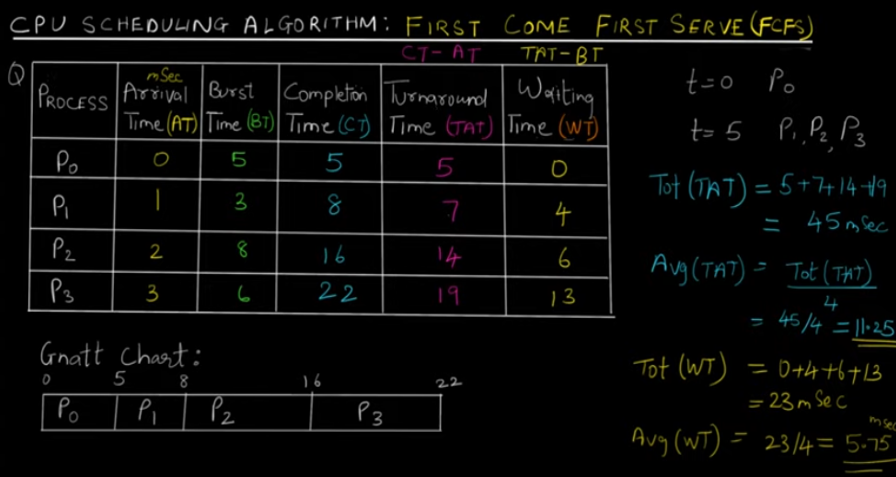 CPU SCHEDULING ALGORITHM: FIRST COME FIRST SERVE (FCFS)
CT-AT TAT-BT
Q
PROCESS mSec Arrival Time (AT) Burst Time (BT) Completion Time (CT) Turnaround Time (TAT) Waiting Time (WT)
P0 0 5 5 5 0
P1 1 3 8 7 4
P2 2 8 16 14 6
P3 3 6 22 19 13
Gnatt Chart:
0 5 8 16 22
P0 P1 P2 P3
t=0 P0
t=5 P1, P2, P3
Tot(TAT) = 5+7+14+19
= 45 mSec
Avg(TAT) = Tot(TAT)
4
= 45/4 = 11.25
Tot(WT) = 0+4+6+13
= 23 mSec
Avg(WT) = 23/4 = 5.75 msec